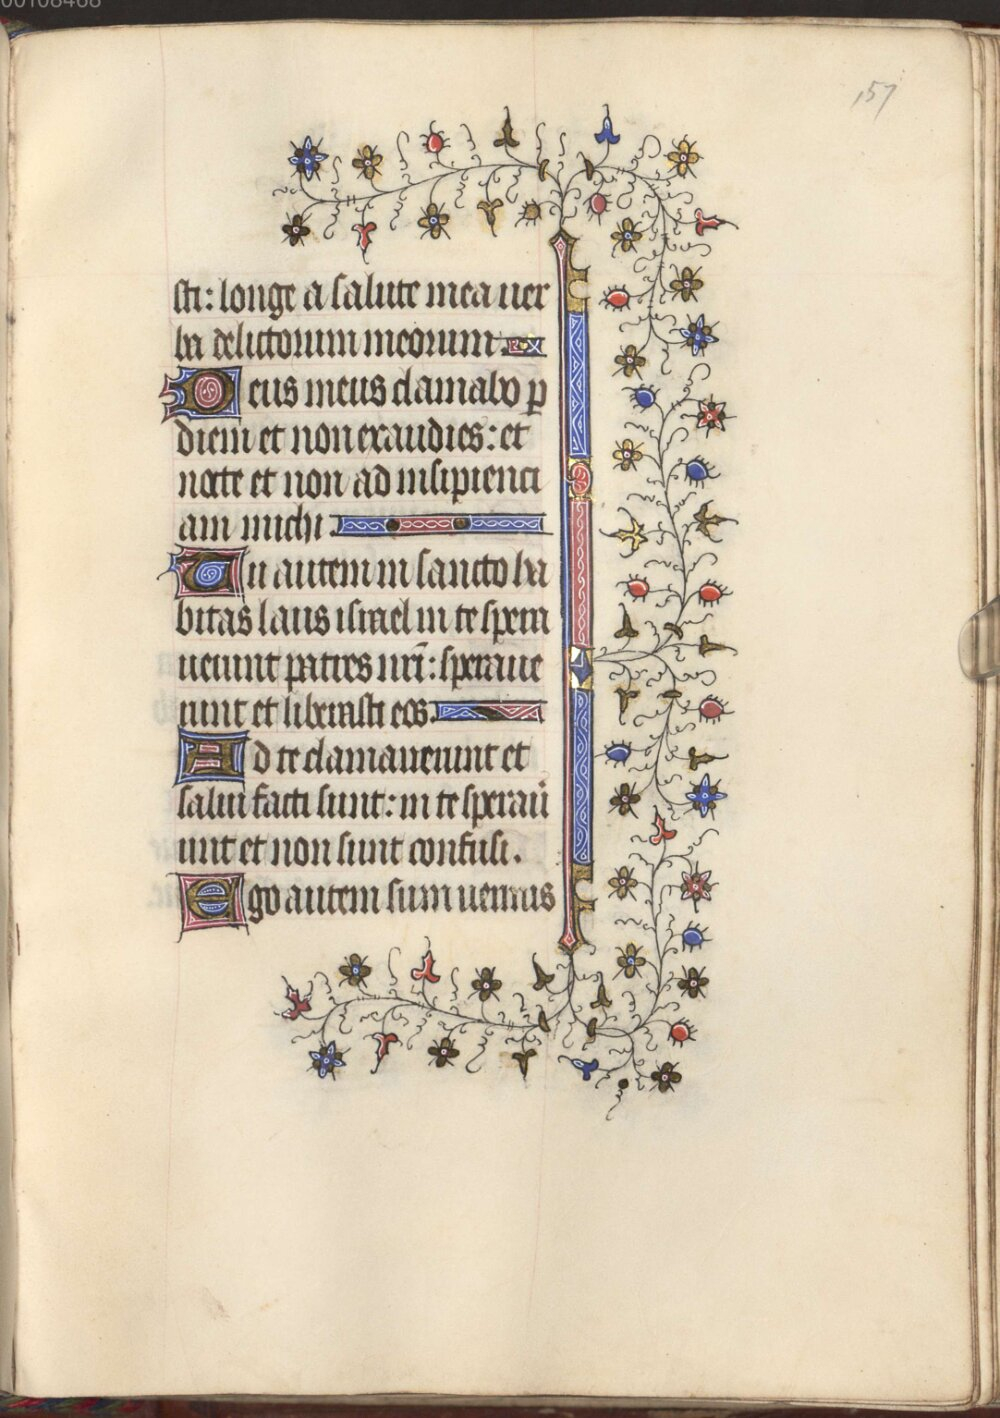 00108468
157
sti: longe a salute mea uer
ba delictorum meorum
Deus meus clamabo p̱
diem et non exaudies: et
nocte et non ad insipienci
am michi
Tu autem in sancto ha
bitas laus israel in te spera
uerunt patres nr̄i: speraue
runt et liberasti eos.
Ad te clamauerunt et
salui facti sunt: in te sperau̅
unt et non sunt confusi.
Ego autem sum uermis